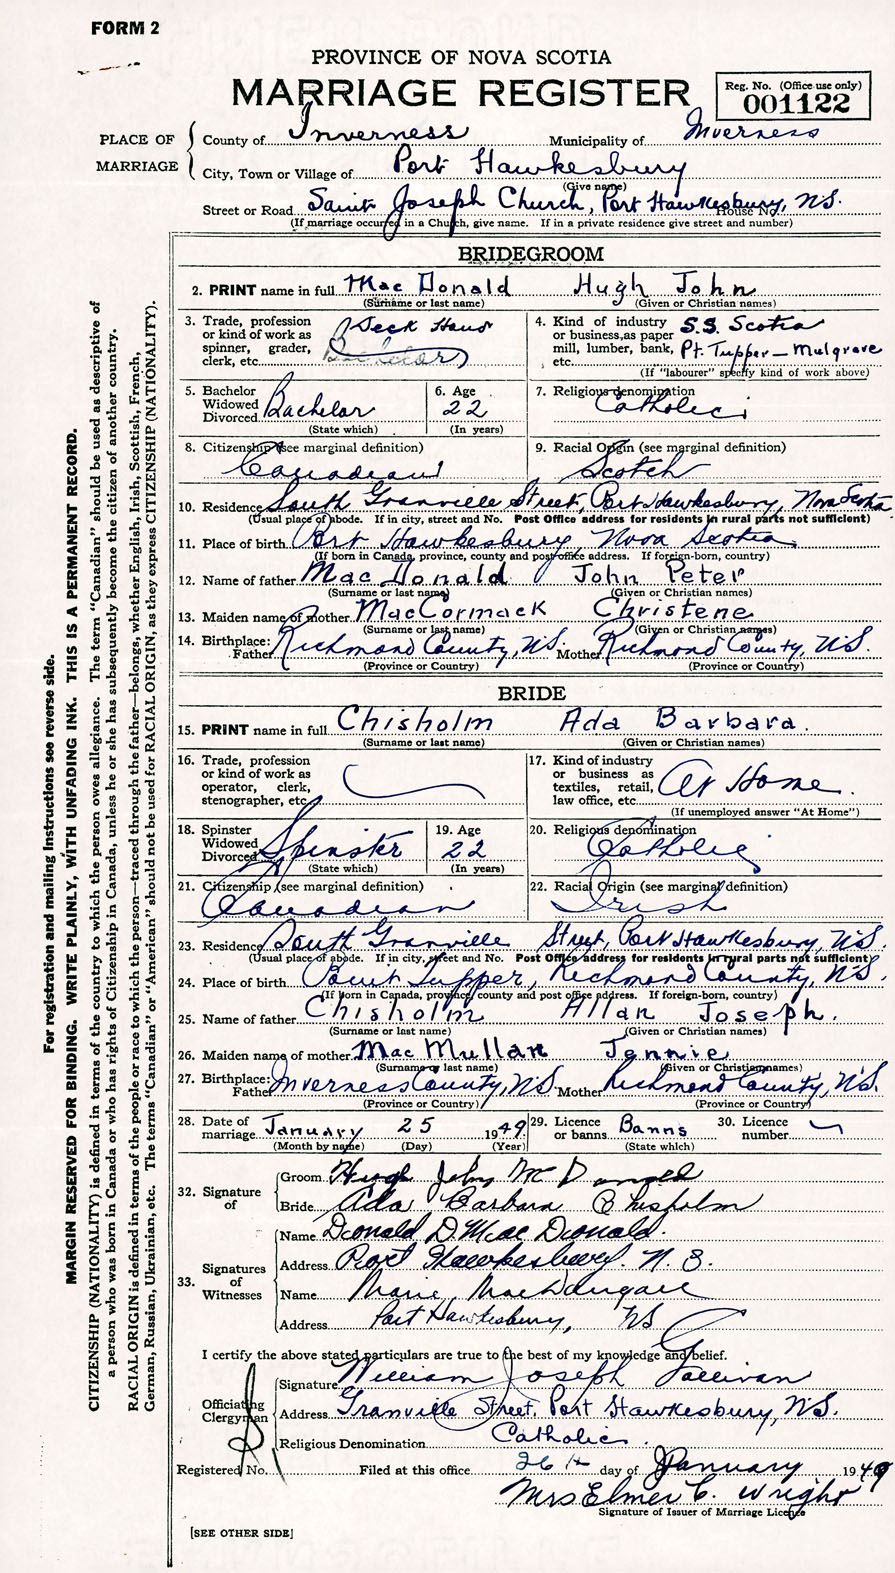 FORM 2
PROVINCE OF NOVA SCOTIA
MARRIAGE REGISTER
Reg. No. (Office use only)
001122
PLACE OF MARRIAGE
County of Inverness Municipality of Inverness
City, Town or Village of Port Hawkesbury
(Give name)
Street or Road Saint Joseph Church, Port Hawkesbury, N.S. House No.
(If marriage occurred in a Church, give name. If in a private residence give street and number)
BRIDEGROOM
2. PRINT name in full Mac Donald Hugh John
(Surname or last name) (Given or Christian names)
3. Trade, profession or kind of work as spinner, grader, clerk, etc. Deck Hand
4. Kind of industry or business, as paper mill, lumber, bank, etc. S.S. Scotia Pt. Tupper - Mulgrave
(If "labourer" specify kind of work above)
5. Bachelor Widowed Divorced Bachelor
(State which)
6. Age 22
(In years)
7. Religious denomination Catholic
8. Citizenship (see marginal definition)
Canadian
9. Racial Origin (see marginal definition)
Scotch
10. Residence South Granville Street, Port Hawkesbury, Nova Scotia
(Usual place of abode. If in city, street and No. Post Office address for residents in rural parts not sufficient)
11. Place of birth Port Hawkesbury, Nova Scotia
(If born in Canada, province, county and post office address. If foreign-born, country)
12. Name of father Mac Donald John Peter
(Surname or last name) (Given or Christian names)
13. Maiden name of mother MacCormack Christene
(Surname or last name) (Given or Christian names)
14. Birthplace: Father Richmond County, N.S. Mother Richmond County, N.S.
(Province or Country) (Province or Country)
BRIDE
15. PRINT name in full Chisholm Ada Barbara.
(Surname or last name) (Given or Christian names)
16. Trade, profession or kind of work as operator, clerk, stenographer, etc.
17. Kind of industry or business as textiles, retail, law office, etc. At Home.
(If unemployed answer "At Home")
18. Spinster Widowed Divorced Spinster
(State which)
19. Age 22
(In years)
20. Religious denomination Catholic
21. Citizenship (see marginal definition)
Canadian
22. Racial Origin (see marginal definition)
Irish
23. Residence South Granville Street, Port Hawkesbury, N.S.
(Usual place of abode. If in city, street and No. Post Office address for residents in rural parts not sufficient)
24. Place of birth Point Tupper, Richmond County, N.S.
(If born in Canada, province, county and post office address. If foreign-born, country)
25. Name of father Chisholm Allan Joseph.
(Surname or last name) (Given or Christian names)
26. Maiden name of mother Mac Mullan Jennie
(Surname or last name) (Given or Christian names)
27. Birthplace: Father Inverness County, N.S. Mother Richmond County, N.S.
(Province or Country) (Province or Country)
28. Date of marriage January 25 1949
(Month by name) (Day) (Year)
29. Licence or banns Banns
(State which)
30. Licence number
32. Signature of
Groom Hugh John McDonald
Bride Ada Barbara Chisholm
33. Signatures of Witnesses
Name Donald D. MacDonald.
Address Port Hawkesbury. N.S.
Name Marie MacDougall
Address Port Hawkesbury, NS
I certify the above stated particulars are true to the best of my knowledge and belief.
Officiating Clergyman
Signature William Joseph Gallivan
Address Granville Street, Port Hawkesbury, N.S.
Religious Denomination Catholic.
Registered No. Filed at this office 26th day of January 1949
Mrs Elmer C. Wright
Signature of Issuer of Marriage Licence
[SEE OTHER SIDE]
For registration and mailing Instructions see reverse side.
MARGIN RESERVED FOR BINDING. WRITE PLAINLY, WITH UNFADING INK. THIS IS A PERMANENT RECORD.
CITIZENSHIP (NATIONALITY) is defined in terms of the country to which the person owes allegiance. The term "Canadian" should be used as descriptive of
a person who was born in Canada or who has rights of Citizenship in Canada, unless he or she has subsequently become the citizen of another country.
RACIAL ORIGIN is defined in terms of the people or race to which the person—traced through the father—belongs, whether English, Irish, Scottish, French,
German, Russian, Ukrainian, etc. The terms "Canadian" or "American" should not be used for RACIAL ORIGIN, as they express CITIZENSHIP (NATIONALITY).